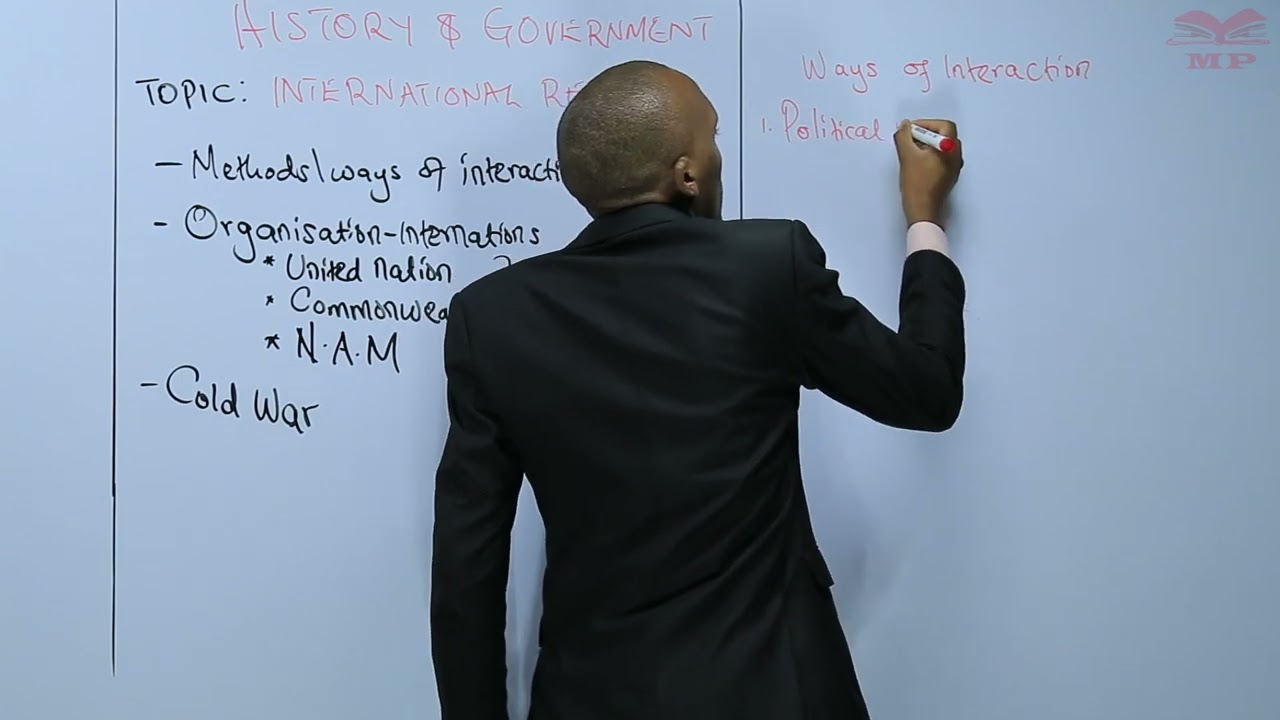 HISTORY & GOVERNMENT
TOPIC: INTERNATIONAL RE
- Methods/ways of interacti
- Organisation-Internations
* United nation
* Commonwea
* N.A.M
- Cold War
Ways of Interaction
1. Political
MP